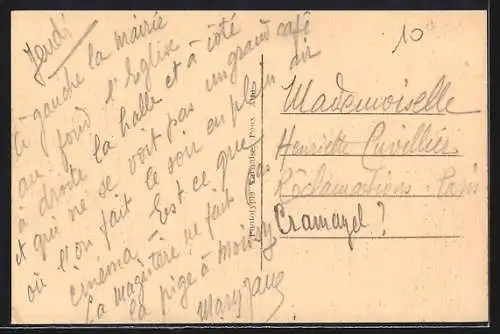 Jeudi
à gauche la mairie
au fond l'Eglise
à droite la halle et à côté
et qui ne se voit pas un grand café
où l'on fait le soir en plein air
cinéma - Est-ce que
la magistère ne fait pas
la pige à Moissy
Mary Jane
10
Mademoiselle
Henriette Cuvillier
Réclamations - Paris
Cramayel ?